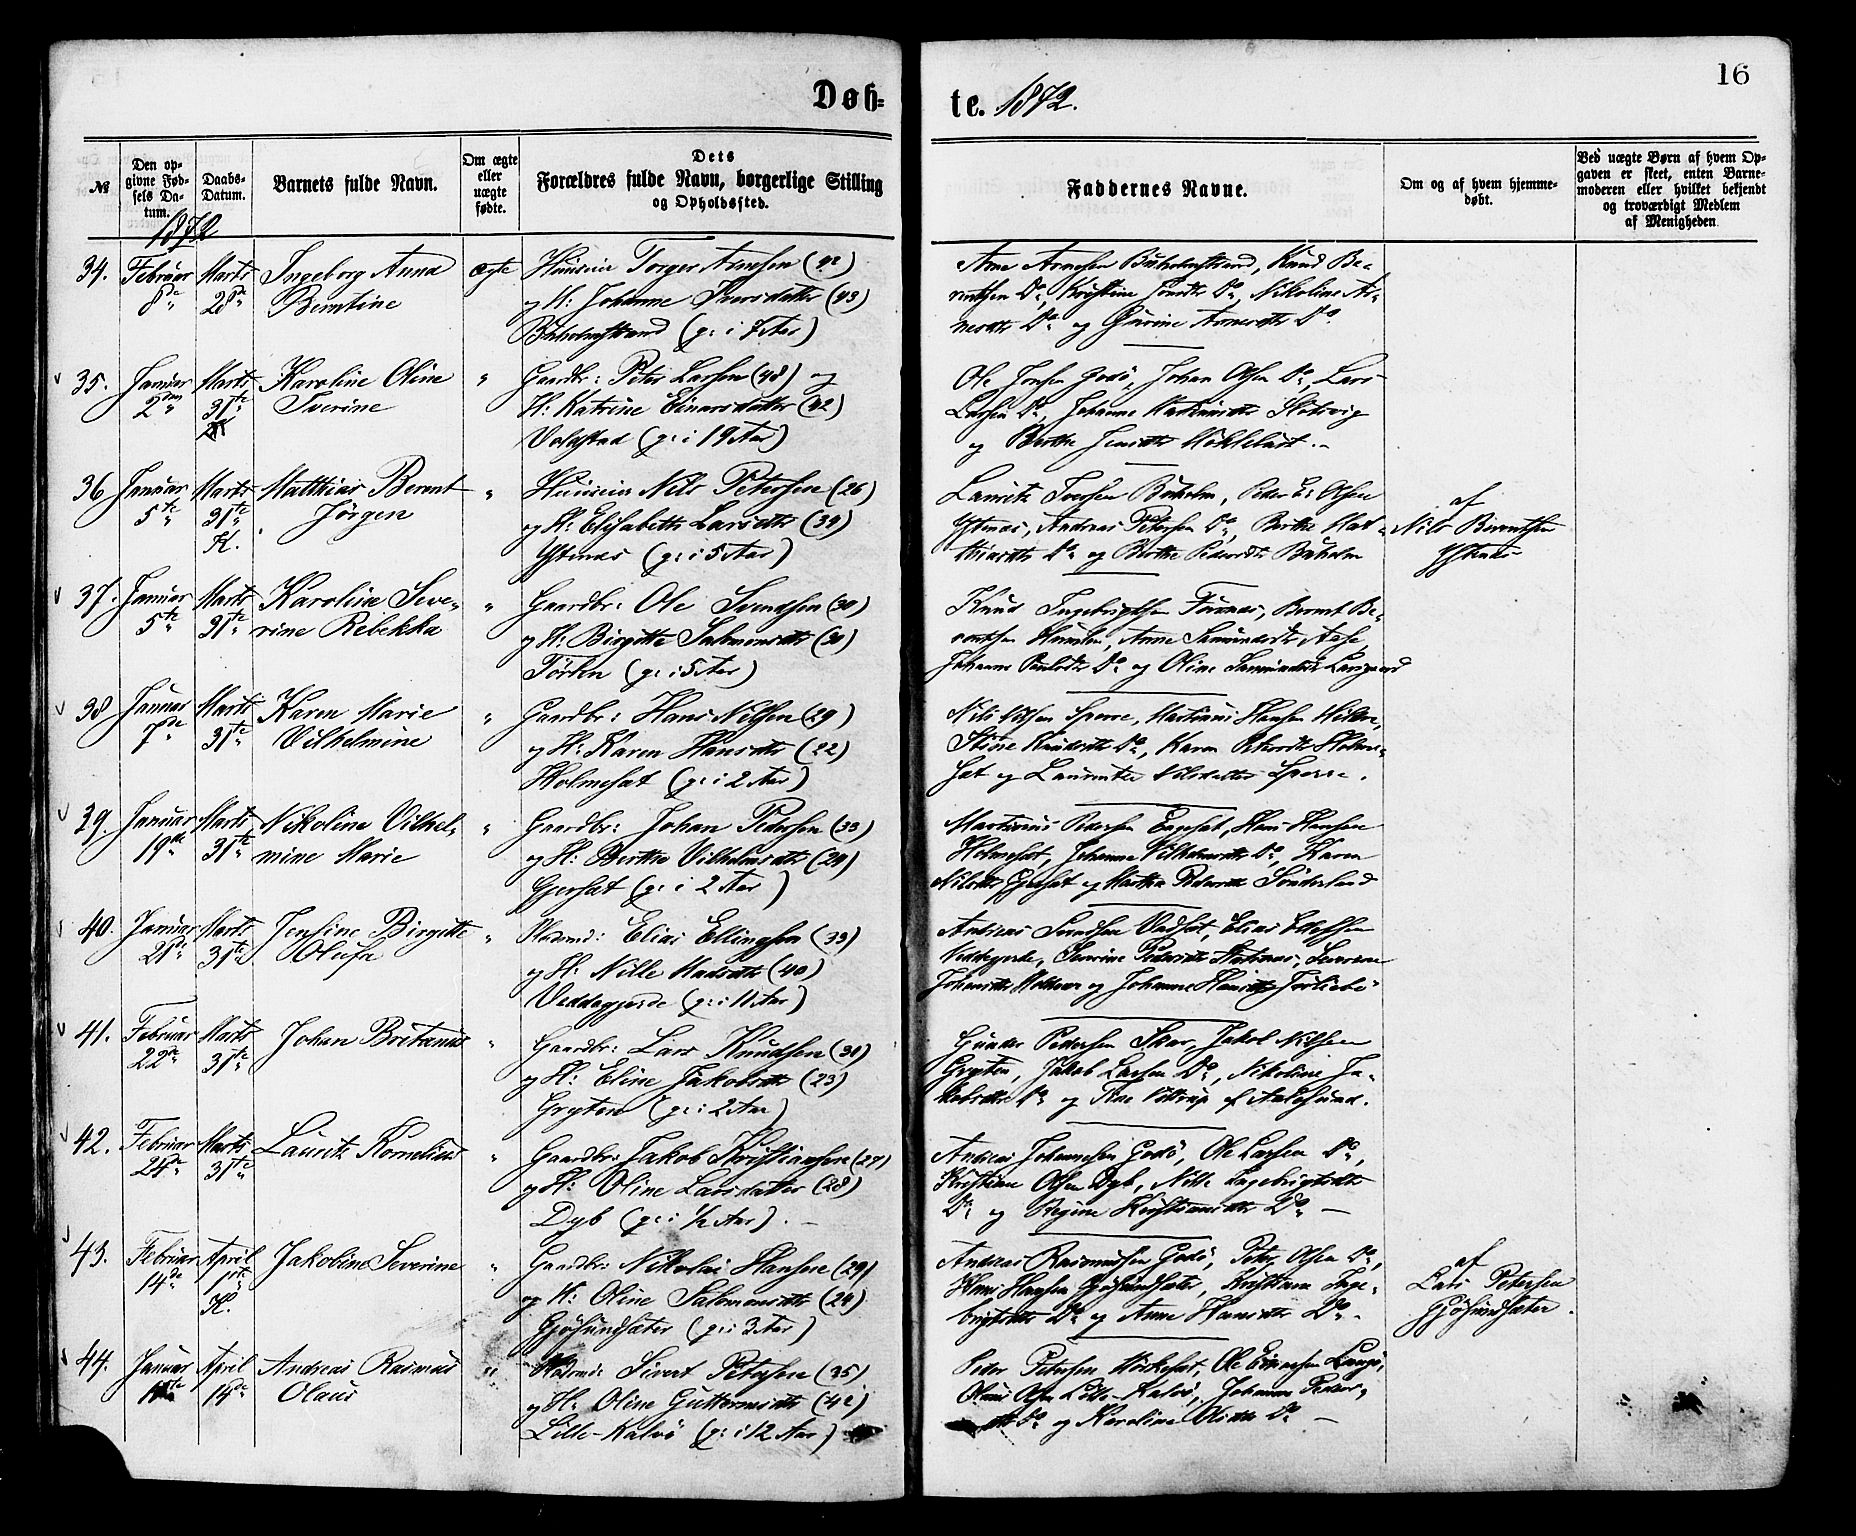 16
Døb=
te. 1872.
№
Den op-
givne Fød-
sels Da-
tum.
Daabs-
Datum.
Barnets fulde Navn.
Om ægte
eller
uægte
fødte.
Dets
Forældres fulde Navn, borgerlige Stilling
og Opholdssted.
Faddernes Navne.
Om og af hvem hjemme-
døbt.
Ved uægte Børn af hvem Op-
gaven er skeet, enten Barne-
moderen eller hvilket bekjendt
og troværdigt Medlem
af Menigheden
1872
34. Februar 8de Marts 28de Ingeborg Anna
Berntine
ægte
Huusm Torger Arnesen (42)
og H: Johanne Iversdatter (43)
Buholmstrand (g: i 7 Aar)
Arne Arnesen Buholmstrand, Knud Be-
rntsen Do, Kristine Do, Nikoline Ar-
nesdtr Do og Gurine Arnesdtr Do
35. Januar 2den Marts 31te Karoline Oline
Iverine
"
Gaardbr: Peter Larsen (48) og
H: Katrine Einarsdatter (42)
Valdstad (g: i 19 Aar)
Ole Jonsen Godö, Johan Olsen Do, Lars
Larsen Do, Johanne
og Berthe Jensdtr
36 Januar 5te Marts 31te K. Matthias Berent
Jörgen
"
Huusm Nils Petersen (26)
og H: Elisabeth Larsdtr (39)
Ystenæs (g: i 5 Aar)
Lauritz Iversen Buholm, Peder E: Olsen
Ystenæs, Andreas Petersen Do, Berthe Mat-
thiasdtr Do og Berthe Pedersdtr Buholm
af
Nils Berentsen
Ystenæs
37. Januar 5te Marts 31te Karoline Seve-
rine Rebekka
"
Gaardbr: Ole Svendsen (30)
og H: Birgitte Salmonsdtr (30)
Törlen (g: i 5 Aar)
Knud Ingebrigtsen Furnæs, Bernt Be-
rentsen Humlen, Anne
Johanne Do og Oline
38 Januar 7de Marts 31te Karen Marie
Vilhelmine
"
Gaardbr: Hans Nilsen (29)
og H: Karen Hansdtr (22)
Holmesæt (g: i 2 Aar)
Nils Olsen Sperre, Martinus Hansen
Stine Knudsdtr Do, Karen Petersdtr Holme-
sæt og Laurentze Nilsdatter Sperre.
39. Januar 19de Marts 31te Nikoline Vilhel-
mine Marie
"
Gaardbr: Johan Pedersen (33)
og H: Berthe Vilhelmsdtr (24)
Gjersæt (g: i 2 Aar)
Martinus Pedersen Engesæt, Hans Hansen
Holmesæt, Johanne Vilhelmsdtr Do, Karen
Nilsdtr Gjersæt og Marthe Pedersdtr Sönderland
40. Januar 21de Marts 31te Jensine Birgitte
Olufa
"
Pladsmd: Elias Ellingsen (33)
og H: Nille Madsdtr (40)
Veddegjerde (g: i 11 Aar)
Andreas Svendsen Vadsæt, Elias
Veddegjerde, Pedersdtr
Johansdtr og Johanne Hansdtr
41. Februar 22de Marts 31te Johan Britanus
"
Gaardbr: Lars Knudsen (31)
og H: Eline Jakobsdtr (23)
Gryten (g: i 2 Aar)
Gunder Pedersen Skar, Jakob Nilsen
Gryten, Jakob Larsen Do, Nikoline Ja-
kobsdtr Do og Tine Vittrup af Aalesund.
42. Februar 24de Marts 31te Lauritz Kornelius
"
Gaardbr: Jakob Kristiansen (27)
og H: Oline Larsdatter (28)
Dyb (g: i ½ Aar). –
Andreas Johannesen Godö, Ole Larsen Do,
Kristian Olsen Dyb, Nille Ingebrigtsdtr
Do og Regine Kristiansdtr Do –
43. Februar 14de April 1ste K. Jakobine Severine
"
Gaardbr: Nikolai Hansen (29)
og H: Oline Salomonsdtr (24)
Gjösundsæter (g: i 3 Aar)
Andreas Rasmussen Godö, Peter Olsen Do,
Hans Hansen Gjösundsæter, Kristiane Inge-
brigtsdtr Do og Anne Hansdtr Do –
af
Lars Petersen
Gjösundsæter.
44. Januar April 14de Andreas Rasmus
Olaus
"
Pladsmd: Sivert Petersen (35)
og H: Oline Guttormsdtr (42)
Lille-Kalvö (g: i 12 Aar)
Peder Petersen, Ole
Olaus Olsen Lille-Kalvö, Johanne Peders-
dtr Do og Karoline Olsdtr Do –